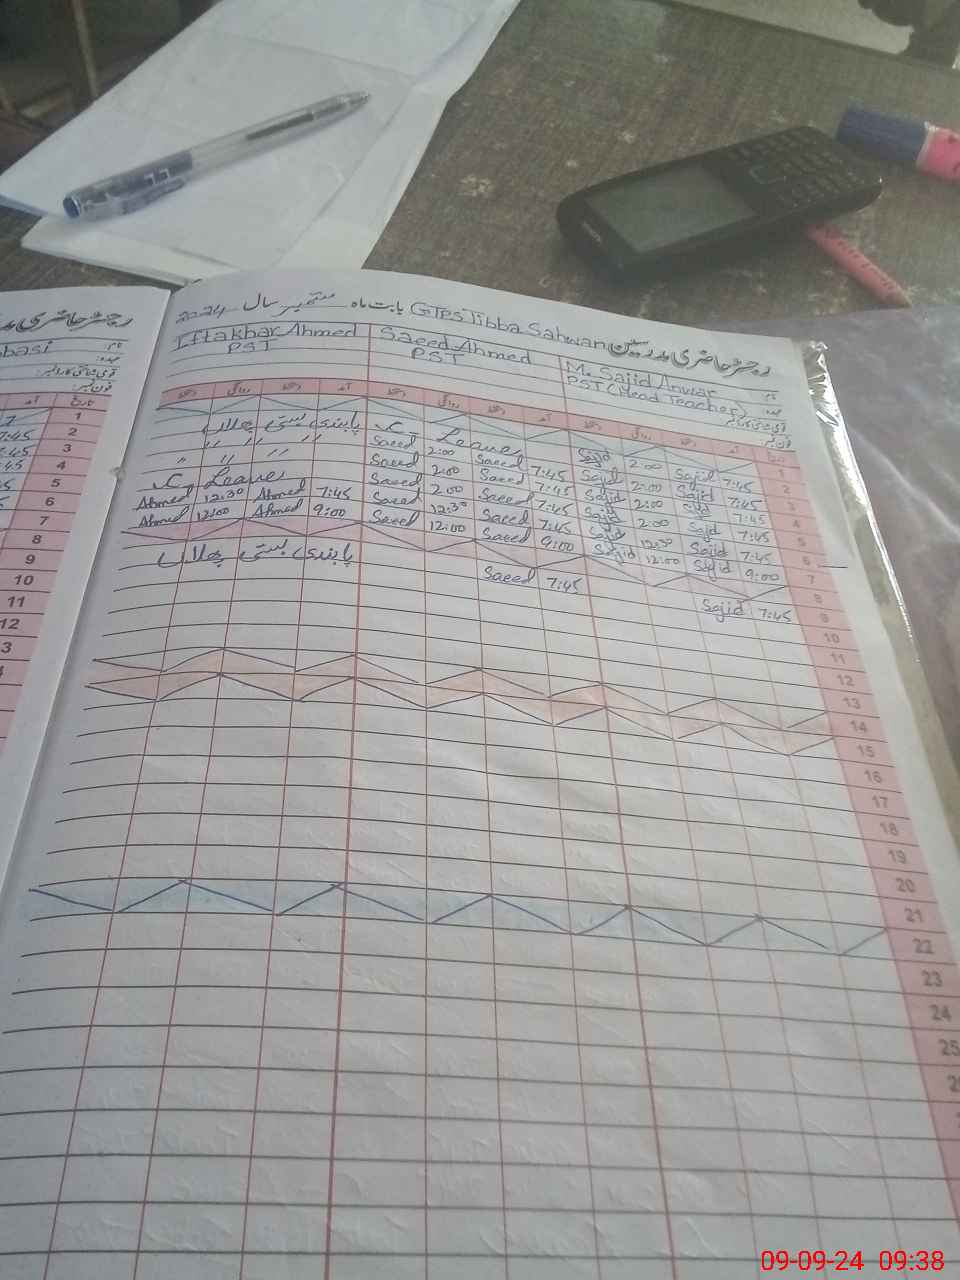 رجسٹر حاضری مدرسین GTPS Tibba Sahwan بابت ماہ ستمبر سال 2024
Iftakhar Ahmed Saeed Ahmed M. Sajid Anwar
PST PST PST (Head Teacher)
تاریخ
1
پابندی بستی C- Leave Sajid 2:00 Sajid 7:45 2
" " " " Saeed 2:00 Saeed 7:45 Sajid 2:00 Sajid 7:45 3
" " " Saeed 2:00 Saeed 7:45 Sajid 2:00 Sajid 7:45 4
C- Leave Saeed 2:00 Saeed 7:45 Sajid 2:00 Sajid 7:45 5
Ahmed 12:30 Ahmed 7:45 Saeed 12:30 Saeed 7:45 Sajid 12:30 Sajid 7:45 6
Ahmed 12:00 Ahmed 9:00 Saeed 12:00 Saeed 9:00 Sajid 12:00 Sajid 9:00 7
8
پابندی بستی Saeed 7:45 Sajid 7:45 9
10
11
12
13
14
15
16
17
18
19
20
21
22
23
24
25
رجسٹر حاضری
تاریخ
1
7:45 2
7:45 3
4
5
6
7
8
9
10
11
12
09-09-24 09:38